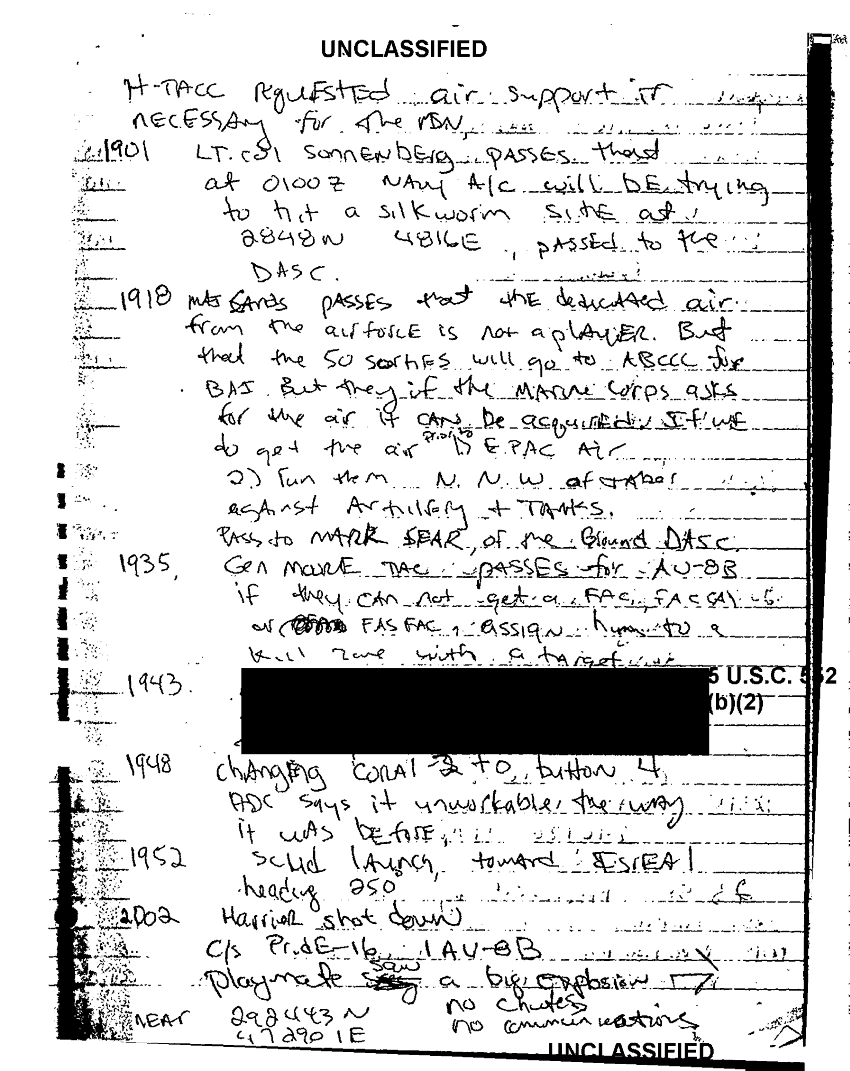 UNCLASSIFIED
H-TACC REQUESTED air support if
NECESSARY for the
1901 LT. Col SONNENBERG PASSES that
at 0100Z NAVY A/C will BE trying
to hit a silkworm SITE at
2848N 4816E, PASSED to the
DASC.
1918 MAJ SANDS PASSES that the dedicated air
from the airforce is not a PLAYER. But
that the 50 sorties will go to ABCCC for
BAI. But they if the MARINE Corps asks
for the air it CAN be acquired. If WE
do get the air 1) E.PAC Air
2) run them N. N.W of
against Artillery + TANKS.
PASS to MARK SEAR, of the Ground DASC.
1935, Gen MOORE TAC PASSES for AU-8B
if they CAN not get a FAC, FAC(A)
or FASFAC, assign him to a
kill zone with a target
5 U.S.C. 552
1943
(b)(2)
1948 changing CORAL-2 to button 4,
ADC says it unworkable the way
it was before,
1952 SCUD launch toward ISrEAl
heading 250
2002 Harrier shot down
C/S PridE-16 1 AU-8B
Playmate saw a big explosion
no chutes
NEAR 292443 N no communications
472901E
UNCLASSIFIED